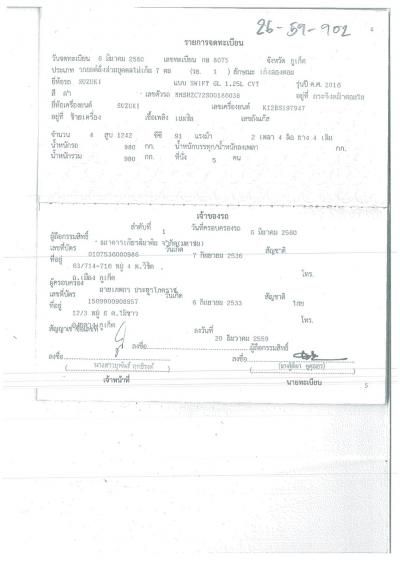 26-59-902
รายการจดทะเบียน
วันจดทะเบียน 6 มีนาคม 2560 เลขทะเบียน กย 8075 จังหวัด ภูเก็ต
ประเภท รถยนต์นั่งส่วนบุคคลไม่เกิน 7 คน (รย. 1 ) ลักษณะ เก๋งสองตอน
ยี่ห้อรถ SUZUKI แบบ SWIFT GL 1.25L CVT รุ่นปี ค.ศ. 2016
สี ดำ เลขตัวรถ
ยี่ห้อเครื่องยนต์ SUZUKI เลขเครื่องยนต์
อยู่ที่ ซ้ายเครื่อง เชื้อเพลิง เบนซิน เลขถังแก๊ส
จำนวน 4 สูบ 1242 ซีซี 91 แรงม้า 2 เพลา 4 ล้อ ยาง 4 เส้น
น้ำหนักรถ 980 กก. น้ำหนักบรรทุก/น้ำหนักลงเพลา กก.
น้ำหนักรวม 980 กก. ที่นั่ง 5 คน
เจ้าของรถ
ลำดับที่ 1 วันที่ครอบครองรถ 6 มีนาคม 2560
ผู้ถือกรรมสิทธิ์
เลขที่บัตร 0107536000986 วันเกิด 7 กันยายน 2536 สัญชาติ
ที่อยู่ 63/714-716 หมู่ 4 ต.วิชิต
อ.เมือง ภูเก็ต โทร.
ผู้ครอบครอง
เลขที่บัตร 1509900908957 วันเกิด 6 กันยายน 2533 สัญชาติ ไทย
ที่อยู่ 12/3 หมู่ 6
โทร.
สัญญาเช่าซื้อเลขที่ ลงวันที่ 20 ธันวาคม 2559
ลงชื่อ ผู้ถือกรรมสิทธิ์
ลงชื่อ ลงชื่อ
เจ้าหน้าที่ นายทะเบียน
5